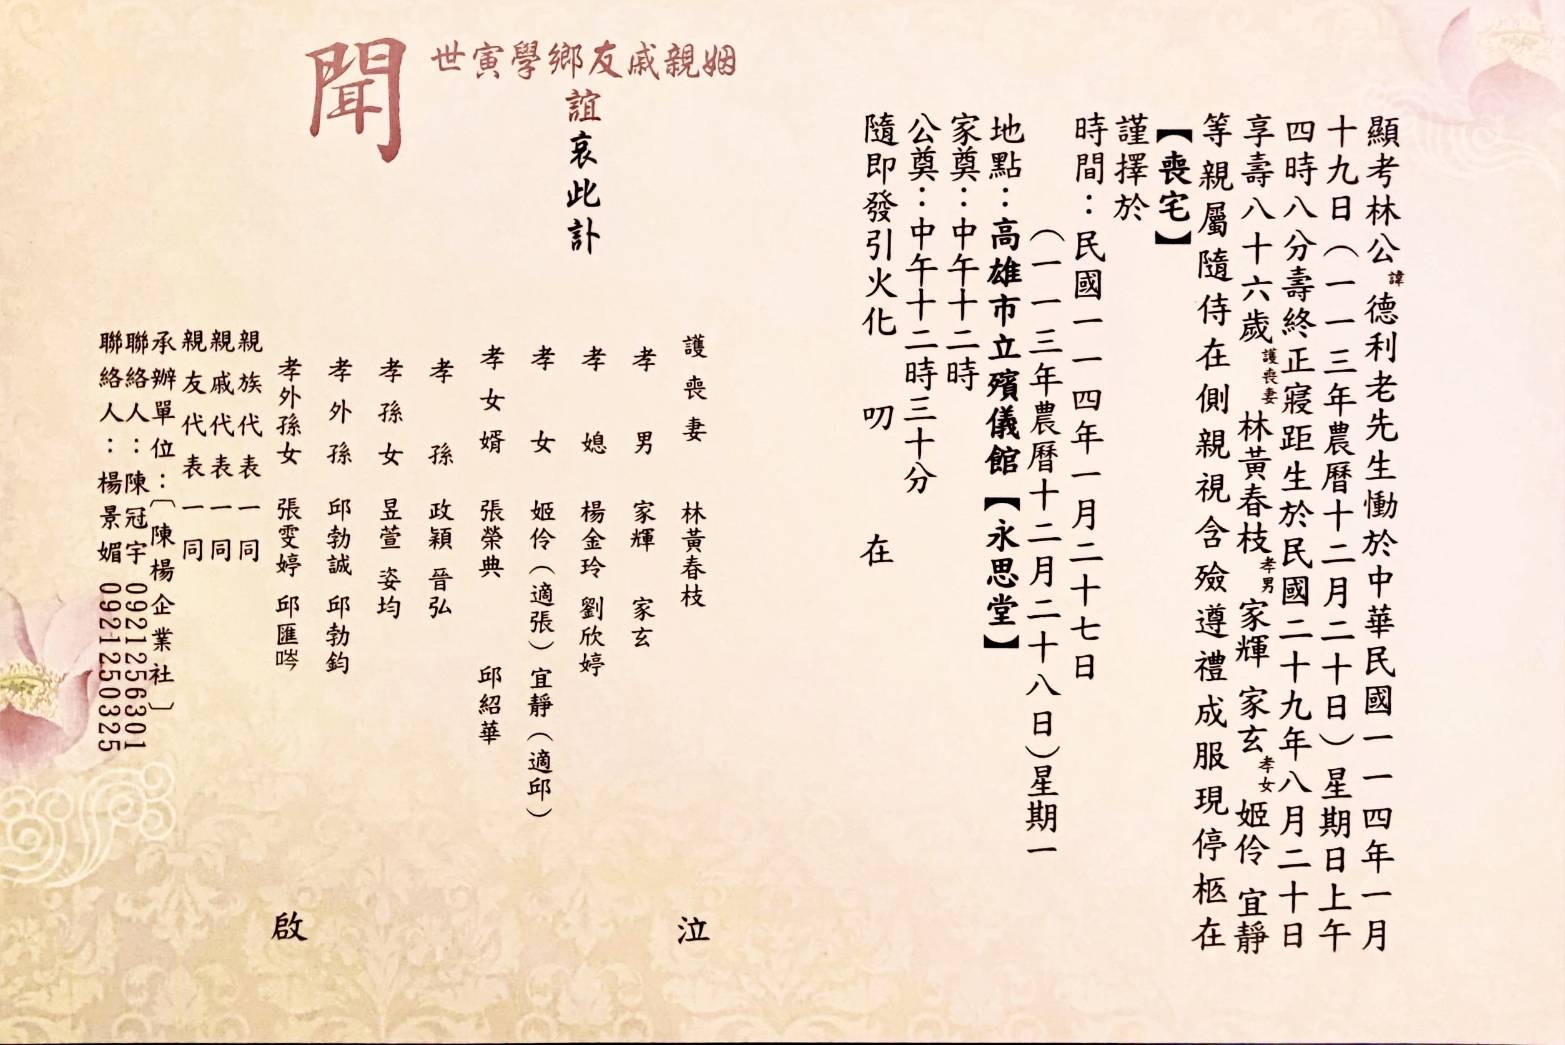 顯考林公諱德利老先生慟於中華民國一一四年一月
十九日（一一三年農曆十二月二十日）星期日上午
四時八分壽終正寢距生於民國二十九年八月二十日
享壽八十六歲護喪妻林黃春枝孝男家輝 家玄孝女姬伶 宜靜
等親屬隨侍在側親視含殮遵禮成服現停柩在
【喪宅】
謹擇於
時間：民國一一四年一月二十七日
（一一三年農曆十二月二十八日）星期一
地點：高雄市立殯儀館【永思堂】
家奠：中午十二時
公奠：中午十二時三十分
隨即發引火化 叨 在
姻親戚友鄉學寅世
誼哀此訃
聞
護喪妻 林黃春枝 泣
孝男 家輝 家玄
孝媳 楊金玲 劉欣婷
孝女 姬伶（適張）宜靜（適邱）
孝女婿 張榮典 邱紹華
孝孫 政穎 晉弘
孝孫女 昱萱 姿均
孝外孫 邱勃誠 邱勃鈞
孝外孫女 張雯婷 邱匯唥 啟
親族代表一同
親戚代表一同
親友代表一同
承辦單位：〔陳楊企業社〕
聯絡人：陳冠宇 0921256301
聯絡人：楊景媚 0921250325